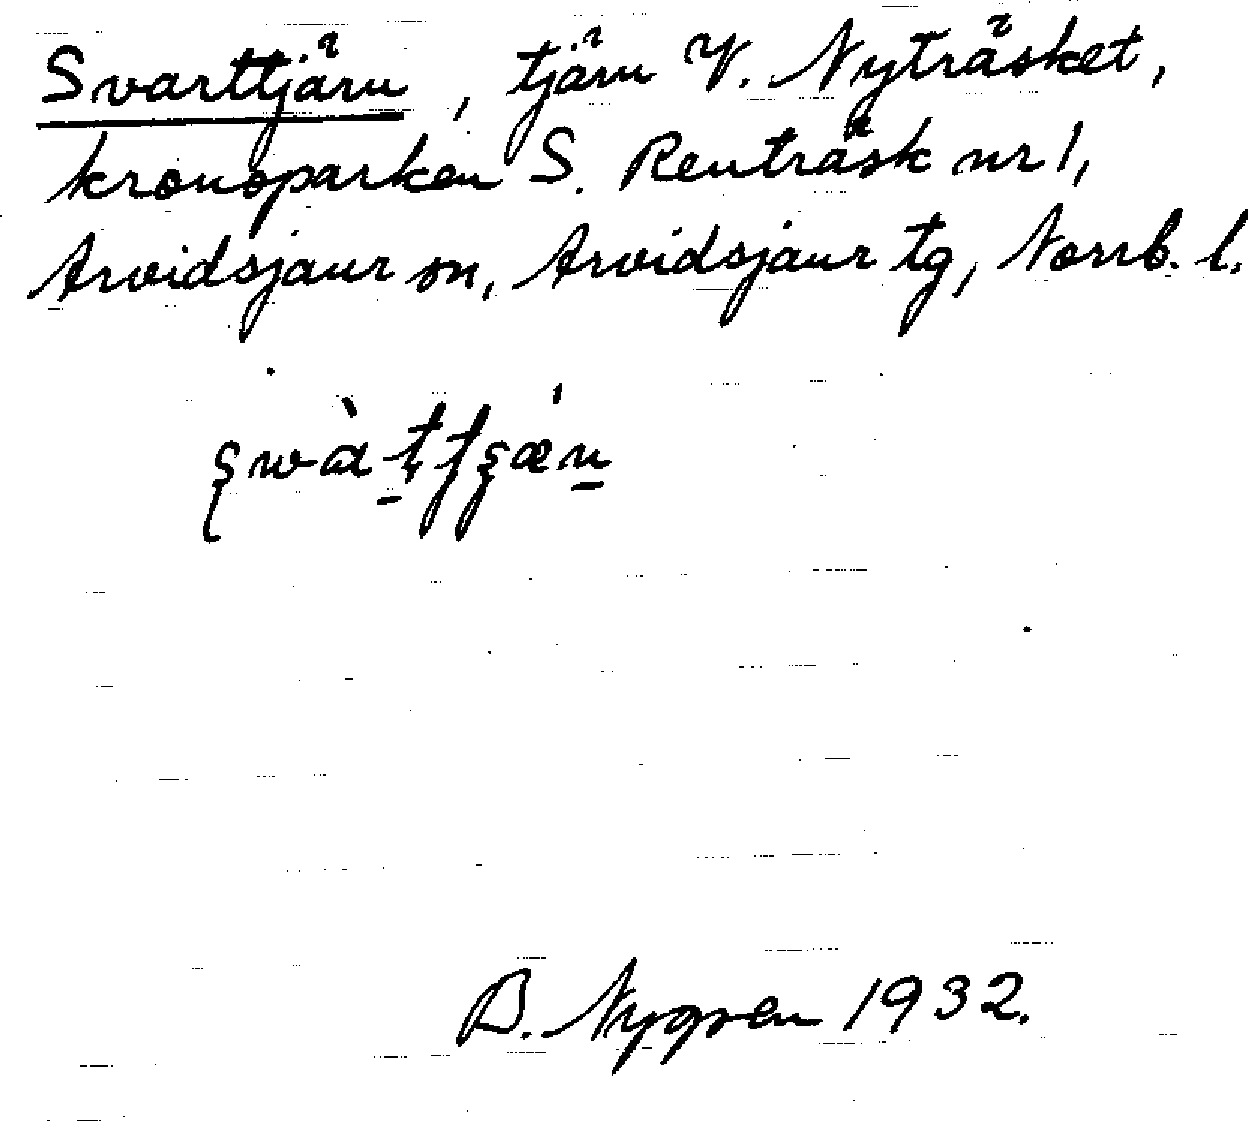 Svarttjärn, tjärn V. Nyträsket,
kronoparken S. Renträsk nr 1,
Arvidsjaur sn, Arvidsjaur tg, Norrb. l.
B. Nygren 1932.